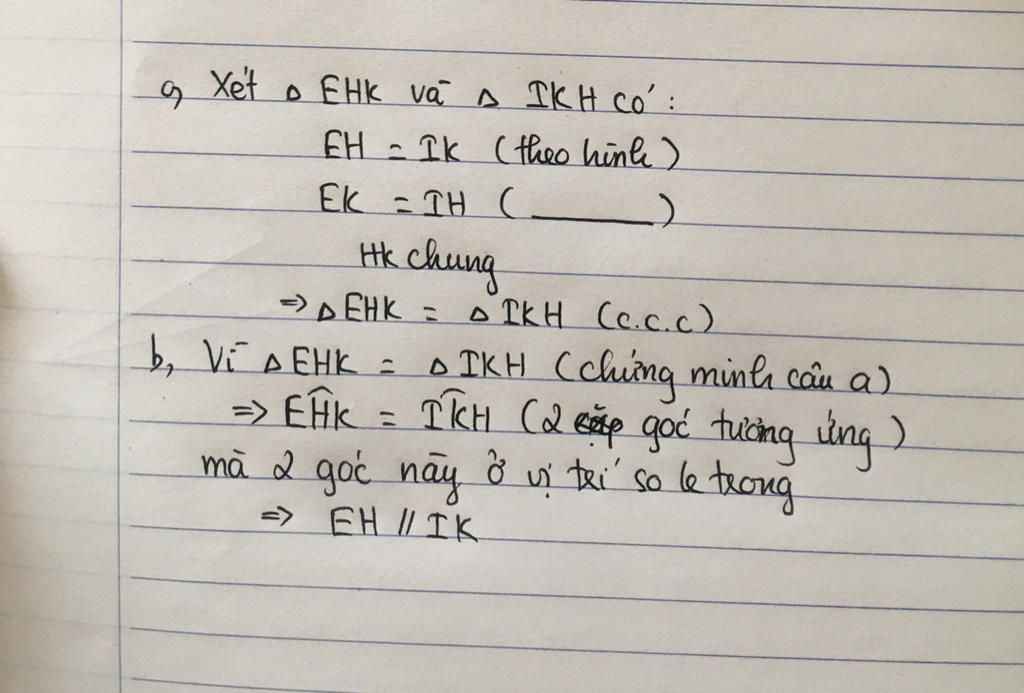 a, Xét Δ EHK và Δ IKH có:
EH = IK (theo hình)
EK = IH (______)
HK chung
=> Δ EHK = Δ IKH (c.c.c)
b, Vì Δ EHK = Δ IKH (chứng minh câu a)
=> EĤK = IK̂H (2 góc tương ứng)
mà 2 góc này ở vị trí so le trong
=> EH // IK